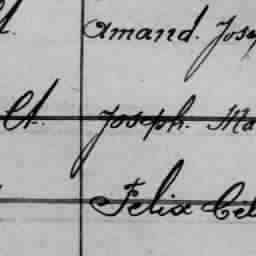 Amand. Jose
Ct. Joseph. Ma
Felix Cel